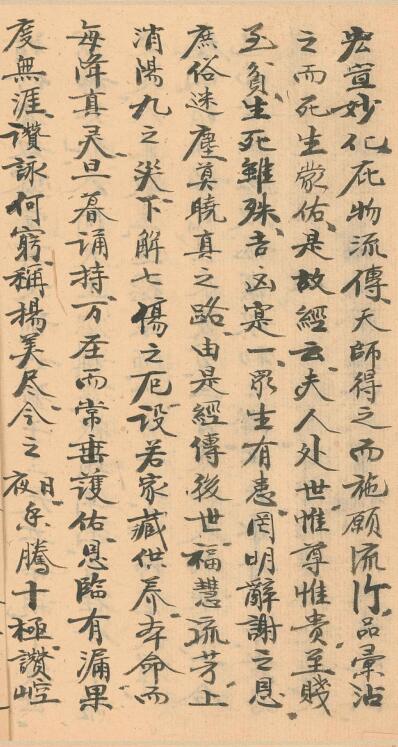 宏宣妙化庇物流傳天師得之而施願流行品彙沾
之而死生蒙佑是故經云夫人处世惟尊惟贵至賤
至貧生死雖殊吉凶寔一眾生有恙罔明辭謝之恩
庶俗迷塵莫曉真之路由是經傳後世福慧流芳上
消陽九之灾下解七傷之厄设若家藏供养本命而
每降真灵旦暮誦持万圣而常垂護佑恩臨有漏果
度無涯讚詠何窮稱揚美尽今之日夜香騰十極讚